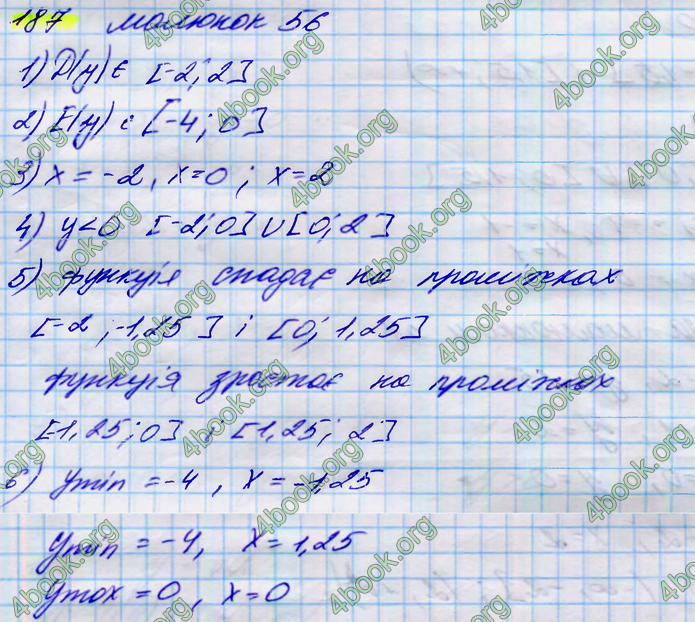 187 малюнок 56
1) D(y) є [-2; 2]
2) E(y) є [-4; 0]
3) x = -2, x=0 ; x=2
4) y<0 [-2; 0] ∪ [0; 2]
5) функція спадає на проміжках
[-2 ; -1,25] і [0; 1,25]
функція зростає на проміжках
[-1,25; 0] і [1,25; 2]
6) ymin = -4 , x = -1,25
ymin = -4, x = 1,25
ymax = 0 , x=0
4book.org